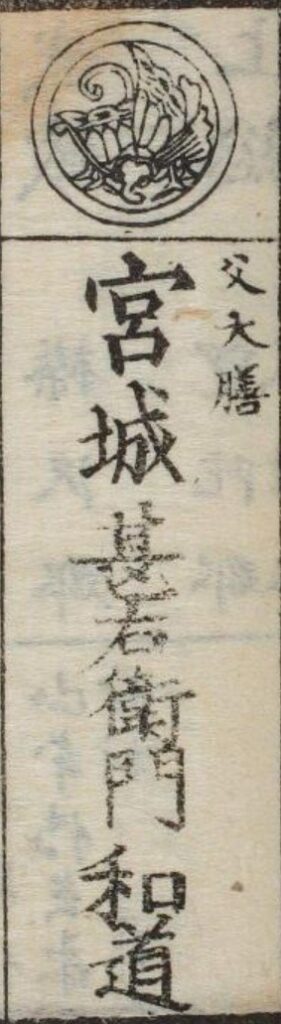 父大膳
宮城甚右衛門和道